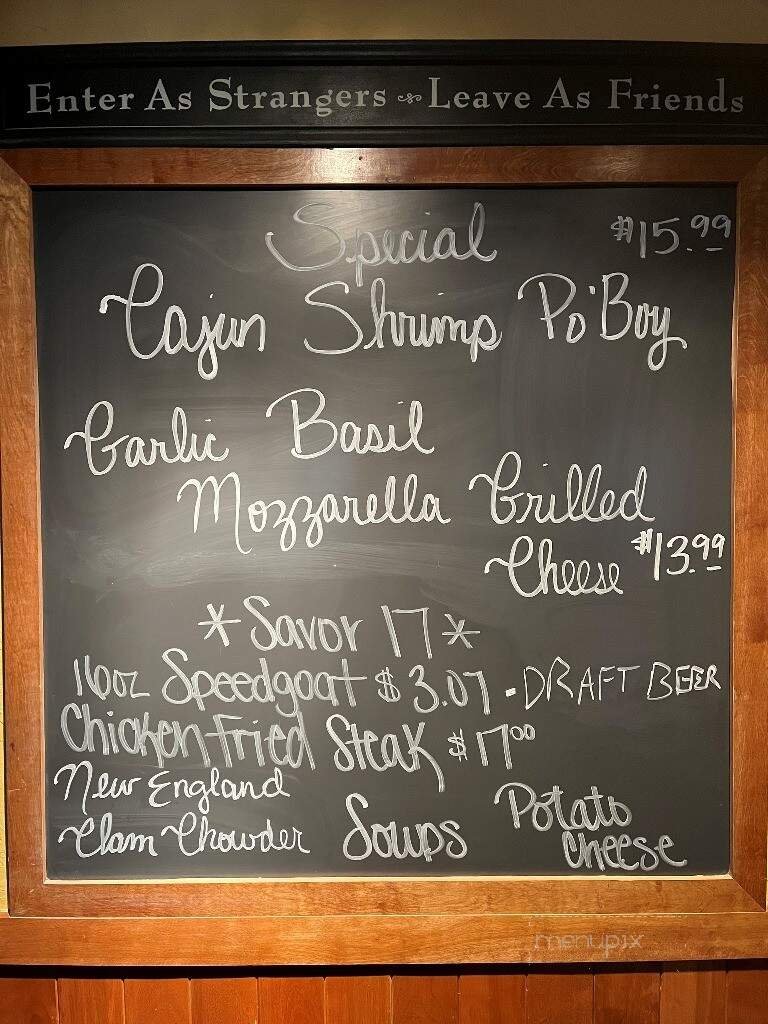 Enter As Strangers Leave As Friends
Special $15.99
Cajun Shrimp Po'Boy
Garlic Basil
Mozzarella Grilled
Cheese $13.99
*Savor 17*
16oz Speedgoat $3.07 - DRAFT BEER
Chicken Fried Steak $17.00
New England
Clam Chowder Soups Potato
Cheese
menupix